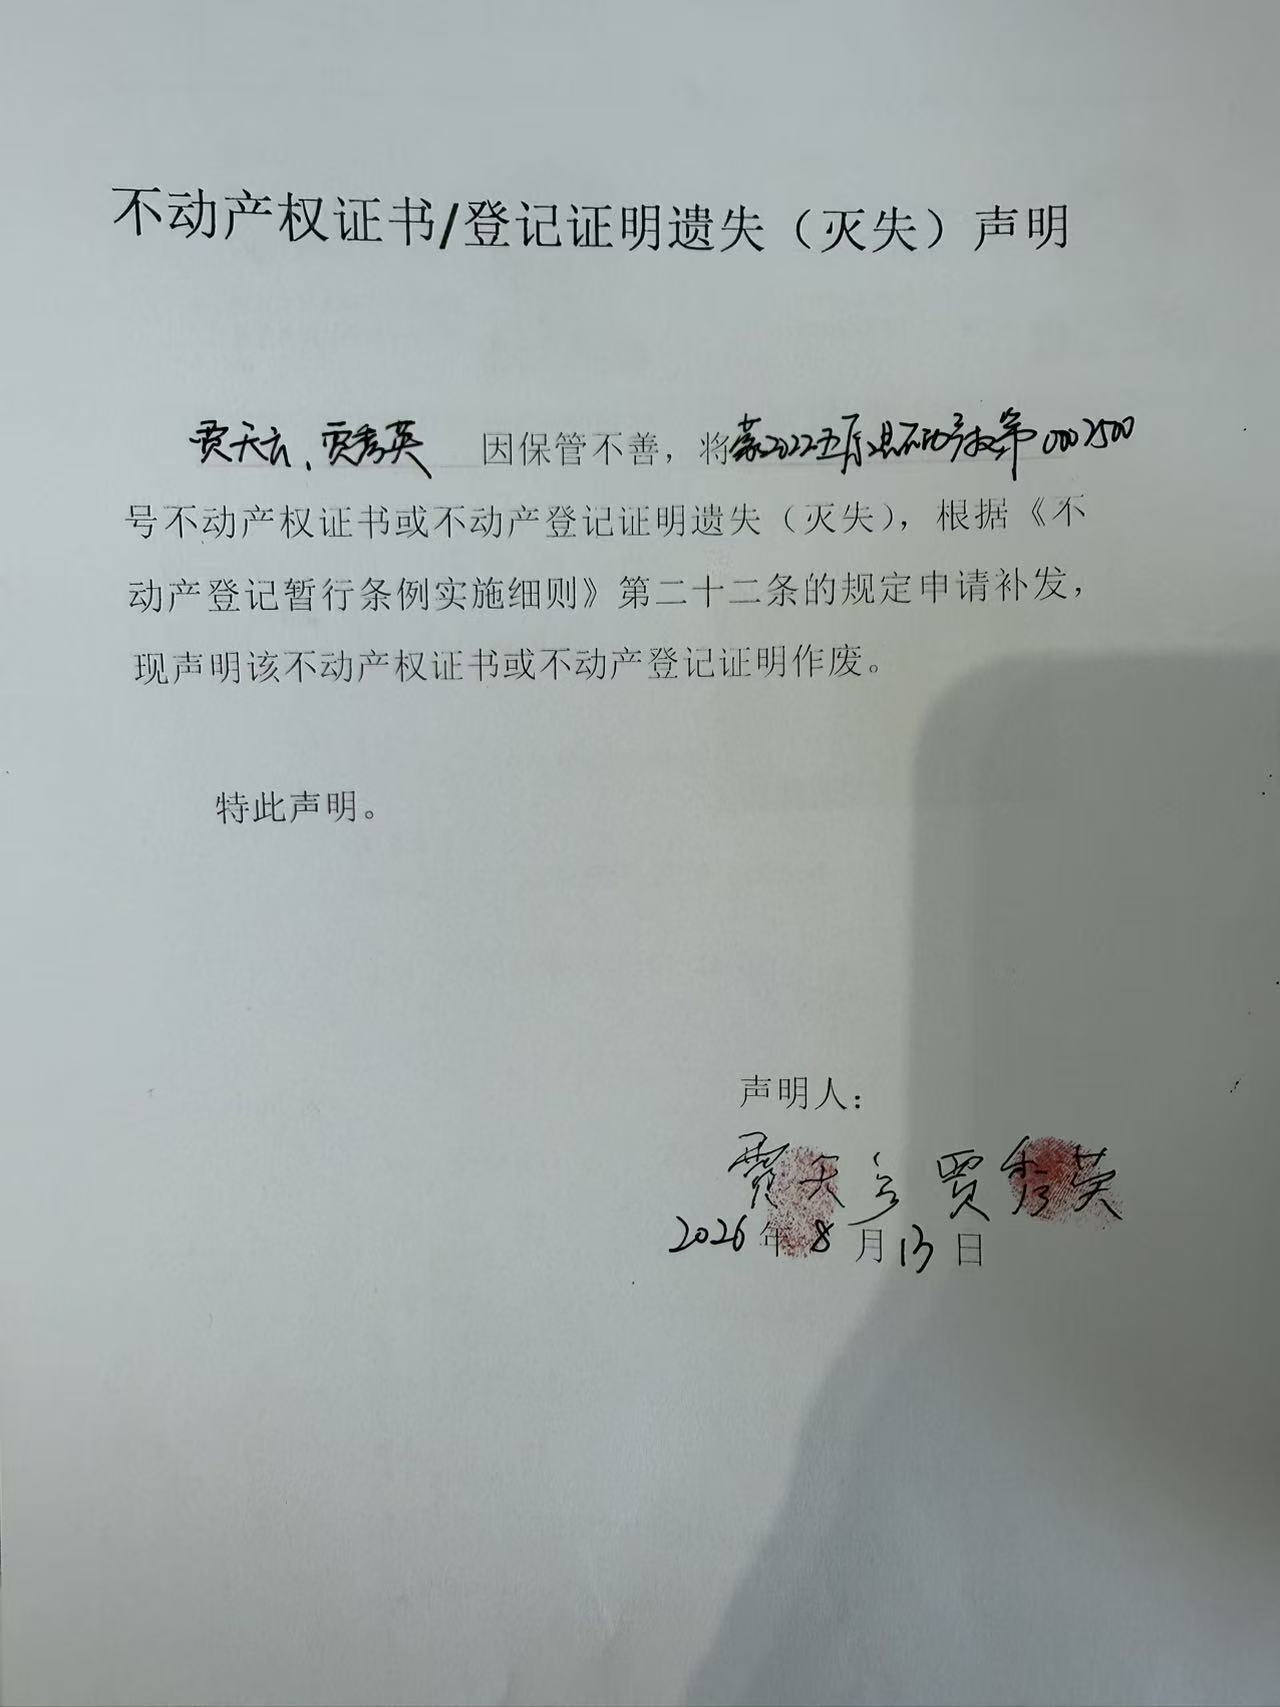 不动产权证书/登记证明遗失（灭失）声明
贾天云、贾秀英 因保管不善，将蒙2022五原县不动产权第0002500
号不动产权证书或不动产登记证明遗失（灭失），根据《不
动产登记暂行条例实施细则》第二十二条的规定申请补发，
现声明该不动产权证书或不动产登记证明作废。
特此声明。
声明人：
贾天云 贾秀英
2026年8月13日